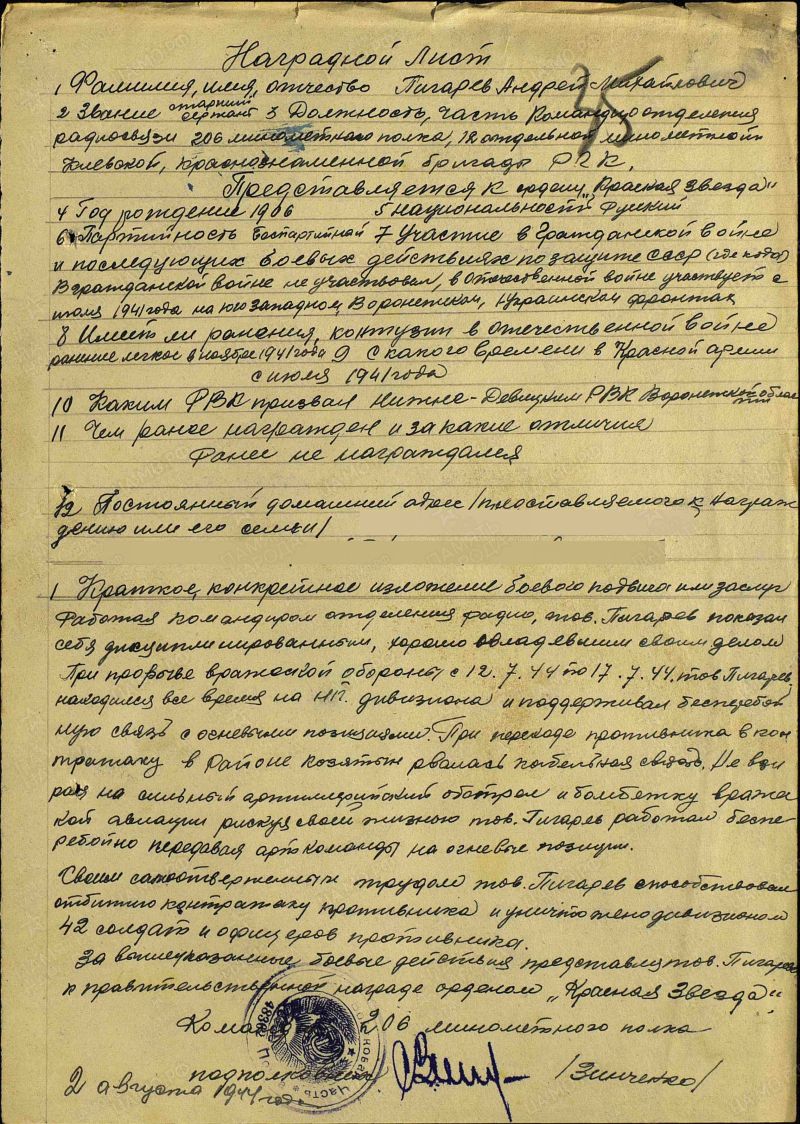 Наградной Лист
1 Фамилия, имя, отчество Пигарев Андрей Михайлович
35
2 Звание старший сержант 3 Должность, часть Командир отделения
радиосвязи 206 минометного полка, 12 отдельной минометной
Киевской, краснознаменной бригады РГК.
Представляется к ордену "Красная звезда"
4 Год рождение 1906 5 национальность Руский
6 Партийность беспартийной 7 Участие в Гражданской войне
и последующих боевых действиях по защите СССР (где когда)
В гражданской войне не участвовал, в отечественной войне участвует с
июля 1941 года на югозападном, Воронежском, 1 украинском фронтах
8 Имеет ли ранения, контузии в отечественной войне
ранение легкое в ноябре 1941 года 9 С какого времени в Красной армии
с июля 1941 года
10 Каким РВК призван Нижне-Девицким РВК Воронежской области
11 Чем ранее награжден и за какие отличия
Ранее не награждался
12 Постоянный домашний адрес /представляемого к награж
дению или его семьи/
1 Краткое, конкретное изложение боевого подвига или заслуг
Работая командиром отделения радио, тов. Пигарев показал
себя дисциплинированным, хорошо овладевшим своим делом
При прорыве вражеской обороны с 12.7.44 по 17.7.44. тов Пигарев,
находился все время на НП. дивизиона и поддерживал бесперебой
ную связь с огневыми позициями. При переходе противника в кон
тратаку в районе козятын рвалась кабельная связь. Не взи
рая на сильный артиллерийский обстрел и бомбежку вражес
кой авиации рискуя своей жизнью тов. Пигарев работал беспе
ребойно передавая арткоманды на огневые позиции.
Своим самоотверженным трудом тов. Пигарев способствовал
отбитию контратаку противника и уничтожено дивизионом
42 солдат и офицеров противника.
За вышеуказанные боевые действия представляю тов. Пигарев
к правительственной награде орденом "Красная Звезда"
Командир 206 минометного полка
подполковник /Зинченко/
2 августа 1944 года